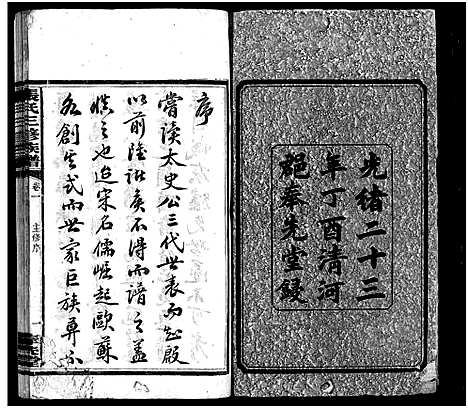 光緒二十三
年丁酉清河
郡奉先堂鋟
序
嘗讀太史公三代世表而知殷
以前陸諸侯不得而譜之蓋
慎之也迨宋名儒崛起歐蘇
各創其式而世家巨族尊不
張氏三修族譜
卷一
主修序
一